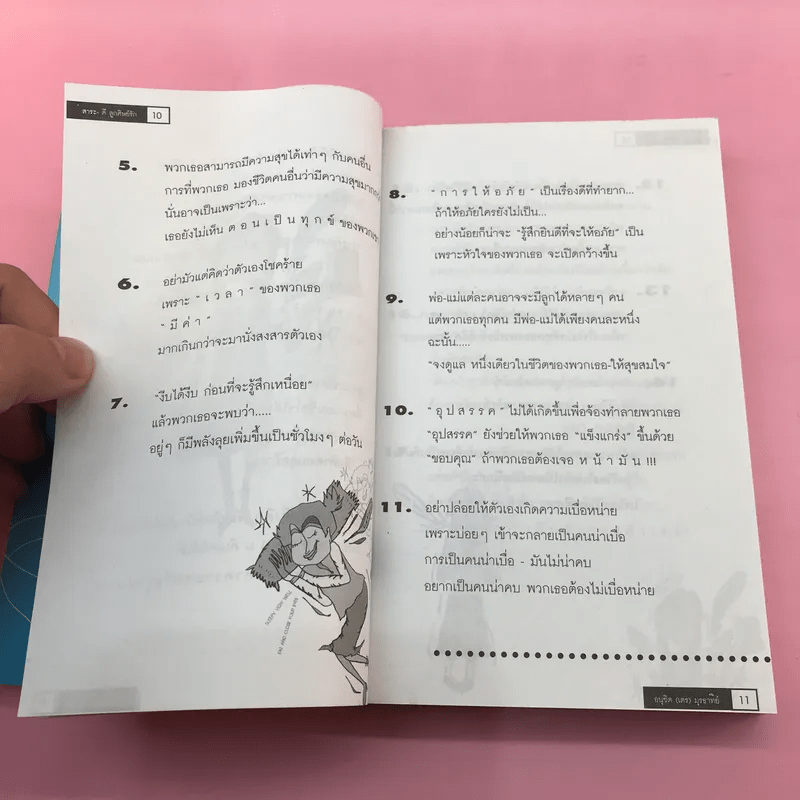 ดาระ- ดี ลูกศิษย์รัก 10
5. พวกเธอสามารถมีความสุขได้เท่าๆ กับคนอื่น
การที่พวกเธอ มองชีวิตคนอื่นว่ามีความสุขมากกว่า
นั่นอาจเป็นเพราะว่า...
เธอยังไม่เห็น ต อ น เ ป็ น ทุ ก ข์ ของพวกเขา
6. อย่ามัวแต่คิดว่าตัวเองโชคร้าย
เพราะ " เ ว ล า " ของพวกเธอ
" มี ค่ า "
มากเกินกว่าจะมานั่งสงสารตัวเอง
7. "งีบได้งีบ ก่อนที่จะรู้สึกเหนื่อย"
แล้วพวกเธอจะพบว่า.....
อยู่ๆ ก็มีพลังลุยเพิ่มขึ้นเป็นชั่วโมงๆ ต่อวัน
8. " ก า ร ใ ห้ อ ภั ย " เป็นเรื่องดีที่ทำยาก...
ถ้าให้อภัยใครยังไม่เป็น...
อย่างน้อยก็น่าจะ "รู้สึกยินดีที่จะให้อภัย" เป็น
เพราะหัวใจของพวกเธอ จะเปิดกว้างขึ้น
9. พ่อ-แม่แต่ละคนอาจจะมีลูกได้หลายๆ คน
แต่พวกเธอทุกคน มีพ่อ-แม่ได้เพียงคนละหนึ่ง
ฉะนั้น.....
"จงดูแล หนึ่งเดียวในชีวิตของพวกเธอ-ให้สุขสมใจ"
10. " อุ ป ส ร ร ค " ไม่ได้เกิดขึ้นเพื่อจ้องทำลายพวกเธอ
"อุปสรรค" ยังช่วยให้พวกเธอ "แข็งแกร่ง" ขึ้นด้วย
"ขอบคุณ" ถ้าพวกเธอต้องเจอ ห น้ า มั น !!!
11. อย่าปล่อยให้ตัวเองเกิดความเบื่อหน่าย
เพราะบ่อยๆ เข้าจะกลายเป็นคนน่าเบื่อ
การเป็นคนน่าเบื่อ - มันไม่น่าคบ
อยากเป็นคนน่าคบ พวกเธอต้องไม่เบื่อหน่าย
11